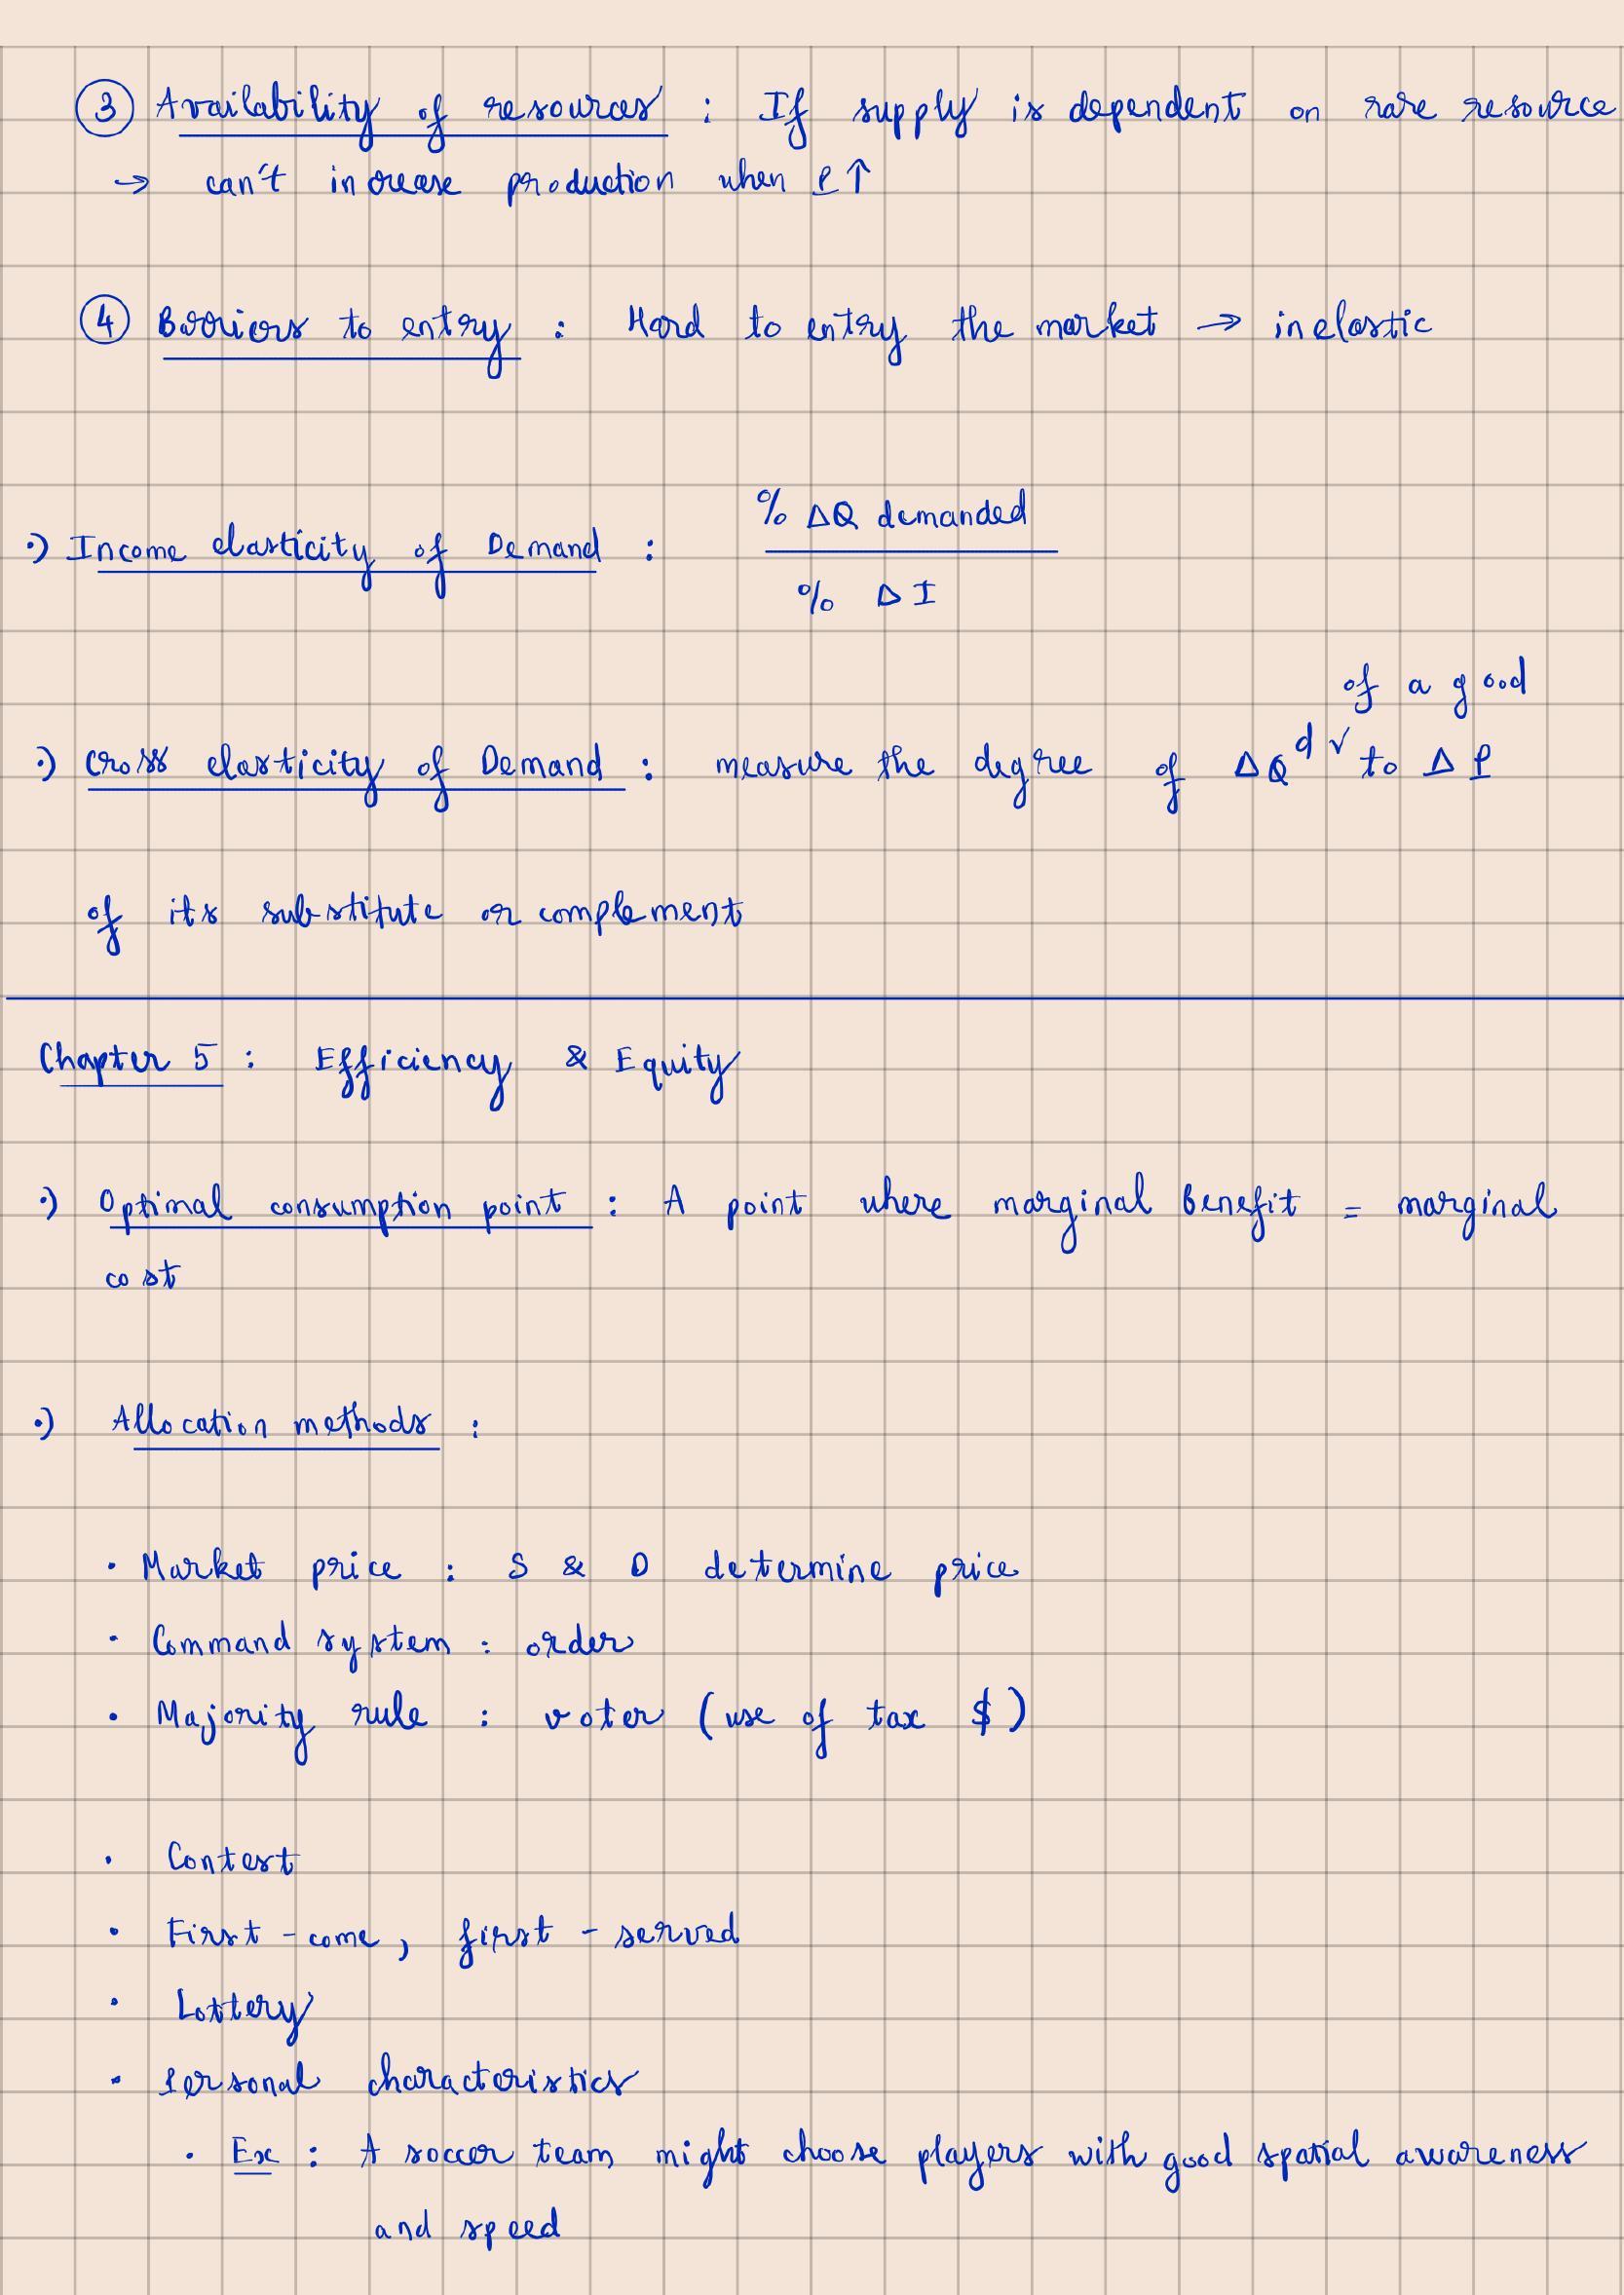 ③ Availability of resources : If supply is dependent on rare resource
→ can't increase production when P↑
④ Barriers to entry : Hard to entry the market → inelastic
% ΔQ demanded
•) Income elasticity of Demand :
% ΔI
of a good
•) Cross elasticity of Demand : measure the degree of ΔQᵈ ✓ to ΔP
of its substitute or complement
Chapter 5 : Efficiency & Equity
•) Optimal consumption point : A point where marginal benefit = marginal
cost
•) Allocation methods :
• Market price : S & D determine price
• Command system : order
• Majority rule : voter (use of tax $)
• Contest
• First-come, first-served
• Lottery
• Personal characteristics
• Ex : A soccer team might choose players with good spatial awareness
and speed